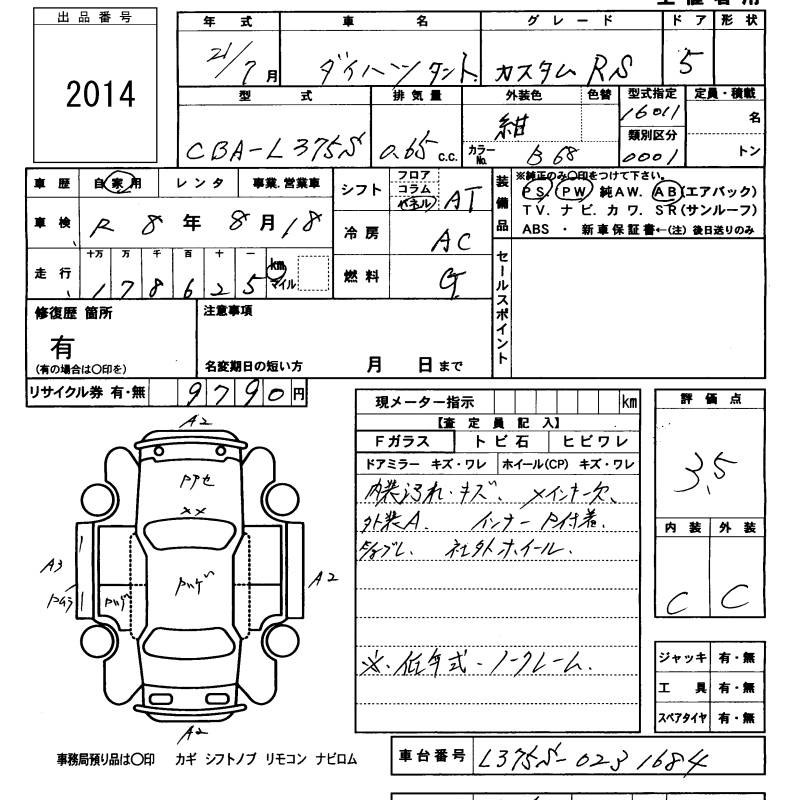 出品番号
2014
年式 車名 グレード ドア 形状
21/7月 ダイハツ タント カスタム RS 5
型式 排気量 外装色 色替 型式指定 定員・積載
CBA-L375S 0.65 c.c. 紺 カラーNo. B68 16011 名
類別区分 0001 トン
車歴 自家用 レンタ 事業.営業車
車検 R8年8月18
走行 十万 万 千 百 十 一
178625 km マイル
シフト フロア コラム パネル AT
冷房 AC
燃料 G
装備品 ※純正のみ○印をつけて下さい。
PS. PW. 純AW. AB(エアバック)
TV. ナビ. カワ. SR(サンルーフ)
ABS ・ 新車保証書←(注) 後日送りのみ
セールスポイント
修復歴 箇所
有
(有の場合は○印を)
注意事項
名変期日の短い方 月 日まで
リサイクル券 有・無 9790円
現メーター指示 km
【査定員記入】
Fガラス トビ石 ヒビワレ
ドアミラー キズ・ワレ ホイール(CP) キズ・ワレ
内装汚れ・キズ、 メインキー欠、
外装A. インナーP付着.
社外ホイール.
※. 低年式・ノークレーム.
評価点
3.5
内装 外装
C C
ジャッキ 有・無
工具 有・無
スペアタイヤ 有・無
A2
××
A3
A2
Pムラ
Pハゲ
Pハゲ
A2
事務局預り品は○印 カギ シフトノブ リモコン ナビロム
車台番号 L375S-0231684